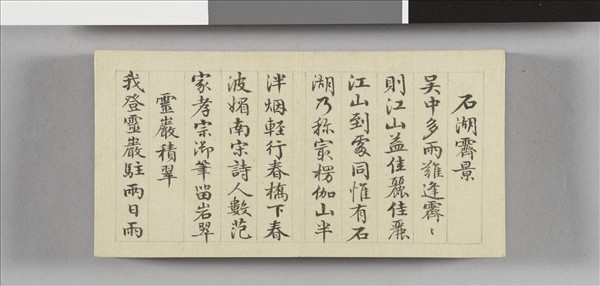 石湖霽景
吳中多雨難逢霽〻
則江山益佳麗佳麗
江山到處同惟有石
湖乃称最楞伽山半
泮烟輕行春橋下春
波媚南宋詩人數范
家孝宗御筆留岩翠
靈巖積翠
我登靈巖駐兩日雨